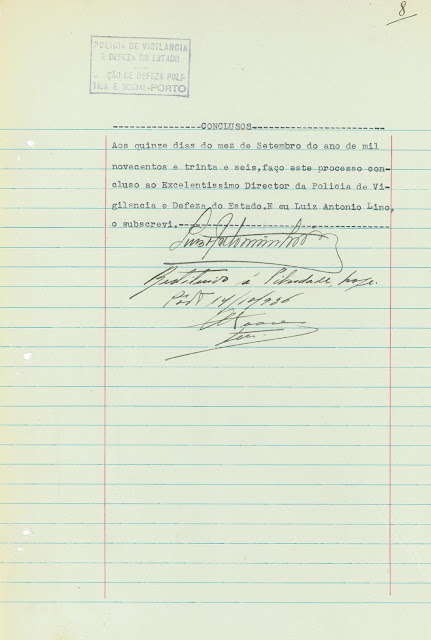 8
POLICIA DE VIGILANCIA
E DEFEZA DO ESTADO
SECÇÃO DE DEFEZA POLI-
TICA E SOCIAL-PORTO
------------------CONCLUSOS---------------------------
Aos quinze dias do mez de Setembro do ano de mil
novecentos e trinta e seis,faço este processo con-
cluso ao Excelentissimo Director da Policia de Vi-
gilancia e Defeza do Estado.E eu Luiz Antonio Lino,
o subscrevi.------------------------------------------
Luiz Antonio Lino
Restituido á liberdade, hoje.
14/10/936